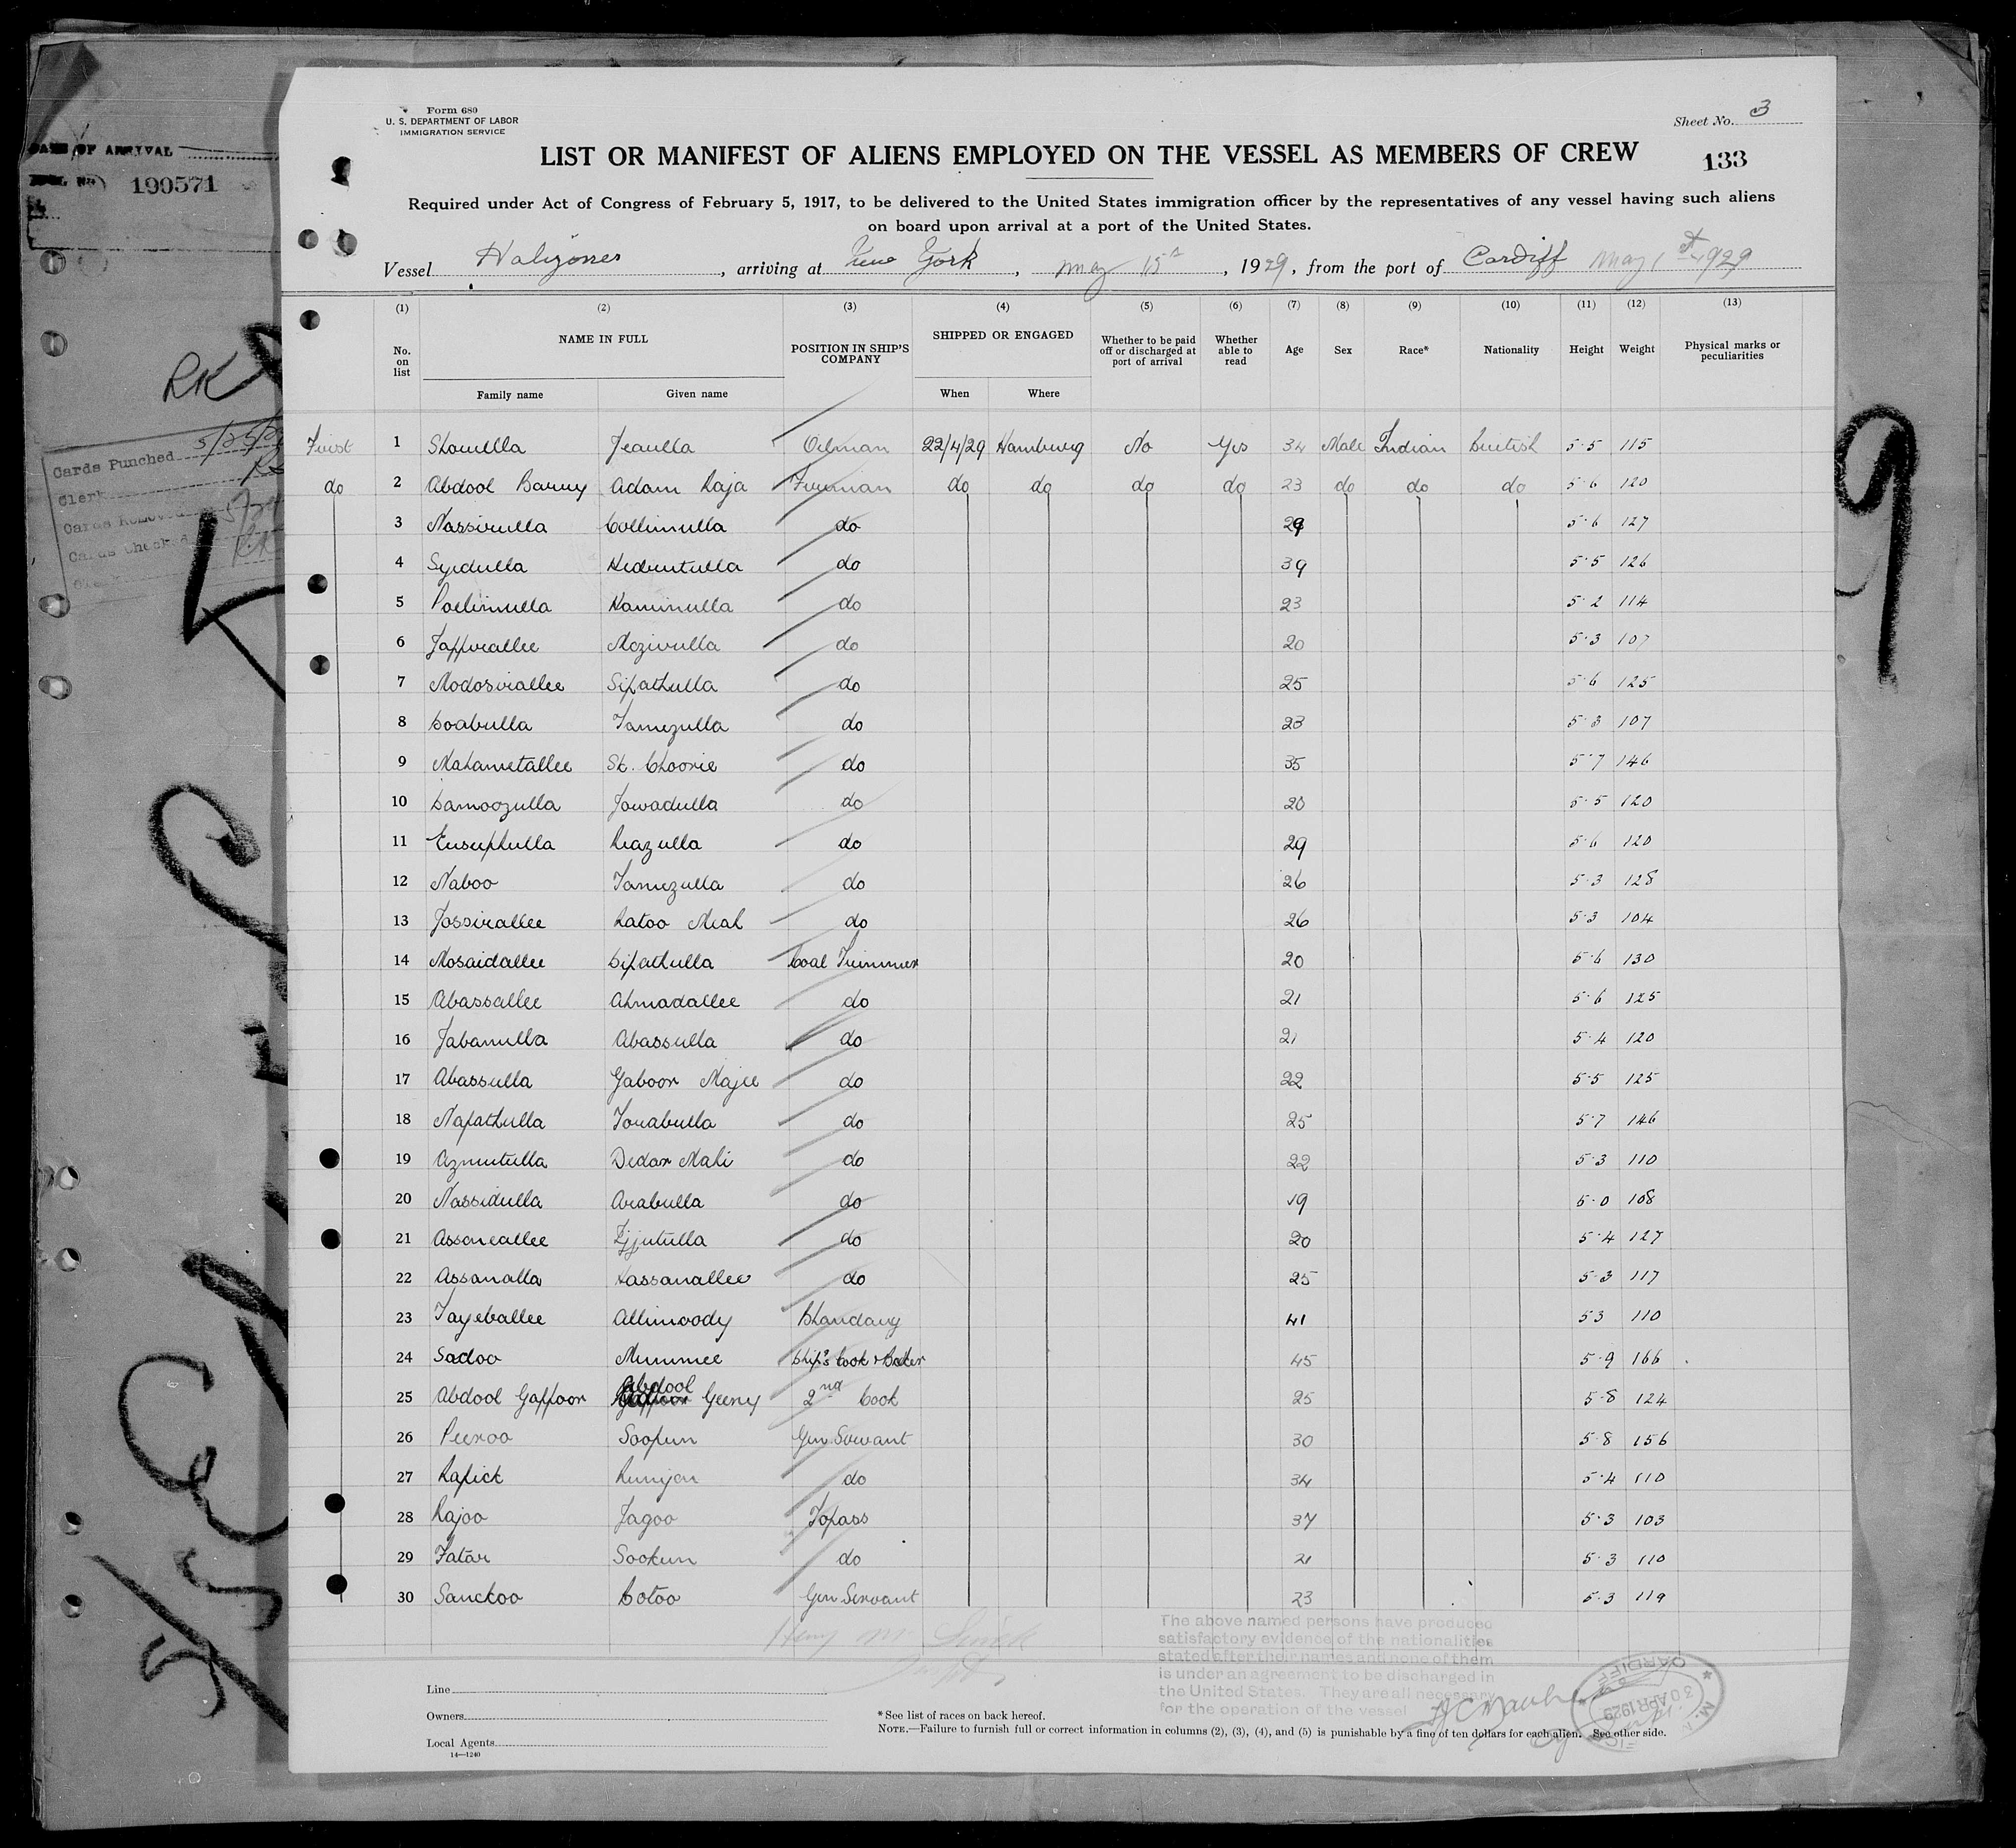 Form 680
U. S. DEPARTMENT OF LABOR
IMMIGRATION SERVICE
Sheet No. 3
LIST OR MANIFEST OF ALIENS EMPLOYED ON THE VESSEL AS MEMBERS OF CREW
133
Required under Act of Congress of February 5, 1917, to be delivered to the United States immigration officer by the representatives of any vessel having such aliens
on board upon arrival at a port of the United States.
Vessel Halizones, arriving at New York, May 15th, 1929, from the port of Cardiff May 1st 1929
(1) (2) (3) (4) (5) (6) (7) (8) (9) (10) (11) (12) (13)
No. on list NAME IN FULL POSITION IN SHIP'S COMPANY SHIPPED OR ENGAGED Whether to be paid off or discharged at port of arrival Whether able to read Age Sex Race* Nationality Height Weight Physical marks or peculiarities
Family name Given name When Where
First 1 Shouella Jeaulla Oilman 22/4/29 Hamburg No Yes 34 Male Indian British 5·5 115
do 2 Abdool Barry Adam Raja Fireman do do do do 23 do do do 5·6 120
3 Nassirulla Collimulla do 29 5·6 127
4 Syedulla do 39 5·5 126
5 Kamimulla do 23 5·2 114
6 Jaffurallee Mozirulla do 20 5·3 107
7 Modosirallee Sifathulla do 25 5·6 125
8 Soabulla Tamizulla do 23 5·3 107
9 Mahametallee Sk. Choorie do 35 5·7 146
10 Samoozulla Jowadulla do 20 5·5 120
11 Eusuphulla Reazulla do 29 5·6 120
12 Naboo Tamizulla do 26 5·3 128
13 Jossirallee Ratoo Meah do 26 5·3 104
14 Mosaidallee Sifathulla Coal Trimmer 20 5·6 130
15 Abassallee Ahmadallee do 21 5·6 125
16 Jabanulla Abassulla do 21 5·4 120
17 Abassulla Gaboor Majee do 22 5·5 125
18 Nafathulla Torabulla do 25 5·7 146
19 Azmutulla Dedar Mahi do 22 5·3 110
20 Nassidulla Arabulla do 19 5·0 108
21 Assoreallee Ejjutulla do 20 5·4 127
22 Assanalla Hassanallee do 25 5·3 117
23 Tayeballee Allimoody Bhandary 41 5·3 110
24 Sadoo Mummee Ship's Cook & Baker 45 5·9 166
25 Abdool Gaffoor Abdool Geeny 2nd Cook 25 5·8 124
26 Peeroo Soofun Gen. Servant 30 5·8 156
27 Rafick Rumjan do 34 5·4 110
28 Rajoo Jagoo Topass 37 5·3 103
29 Fatar Sookun do 21 5·3 110
30 Sanckoo Cotoo Gen Servant 23 5·3 119
The above named persons have produced
satisfactory evidence of the nationalities
stated after their names and none of them
is under an agreement to be discharged in
the United States. They are all necessary
for the operation of the vessel
CARDIFF
30 APR 1929
Line
Owners
Local Agents
14—1240
* See list of races on back hereof.
NOTE.—Failure to furnish full or correct information in columns (2), (3), (4), and (5) is punishable by a fine of ten dollars for each alien. See other side.
DATE OF ARRIVAL
190571
RK
Cards Punched 5/25/29
Clerk
Cards Removed
Cards Checked